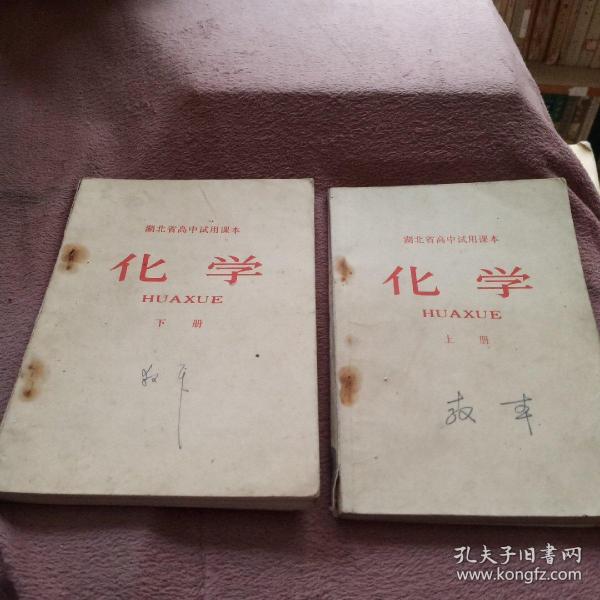 湖北省高中试用课本
化学
HUAXUE
下册
湖北省高中试用课本
化学
HUAXUE
上册
孔夫子旧书网
www.kongfz.com